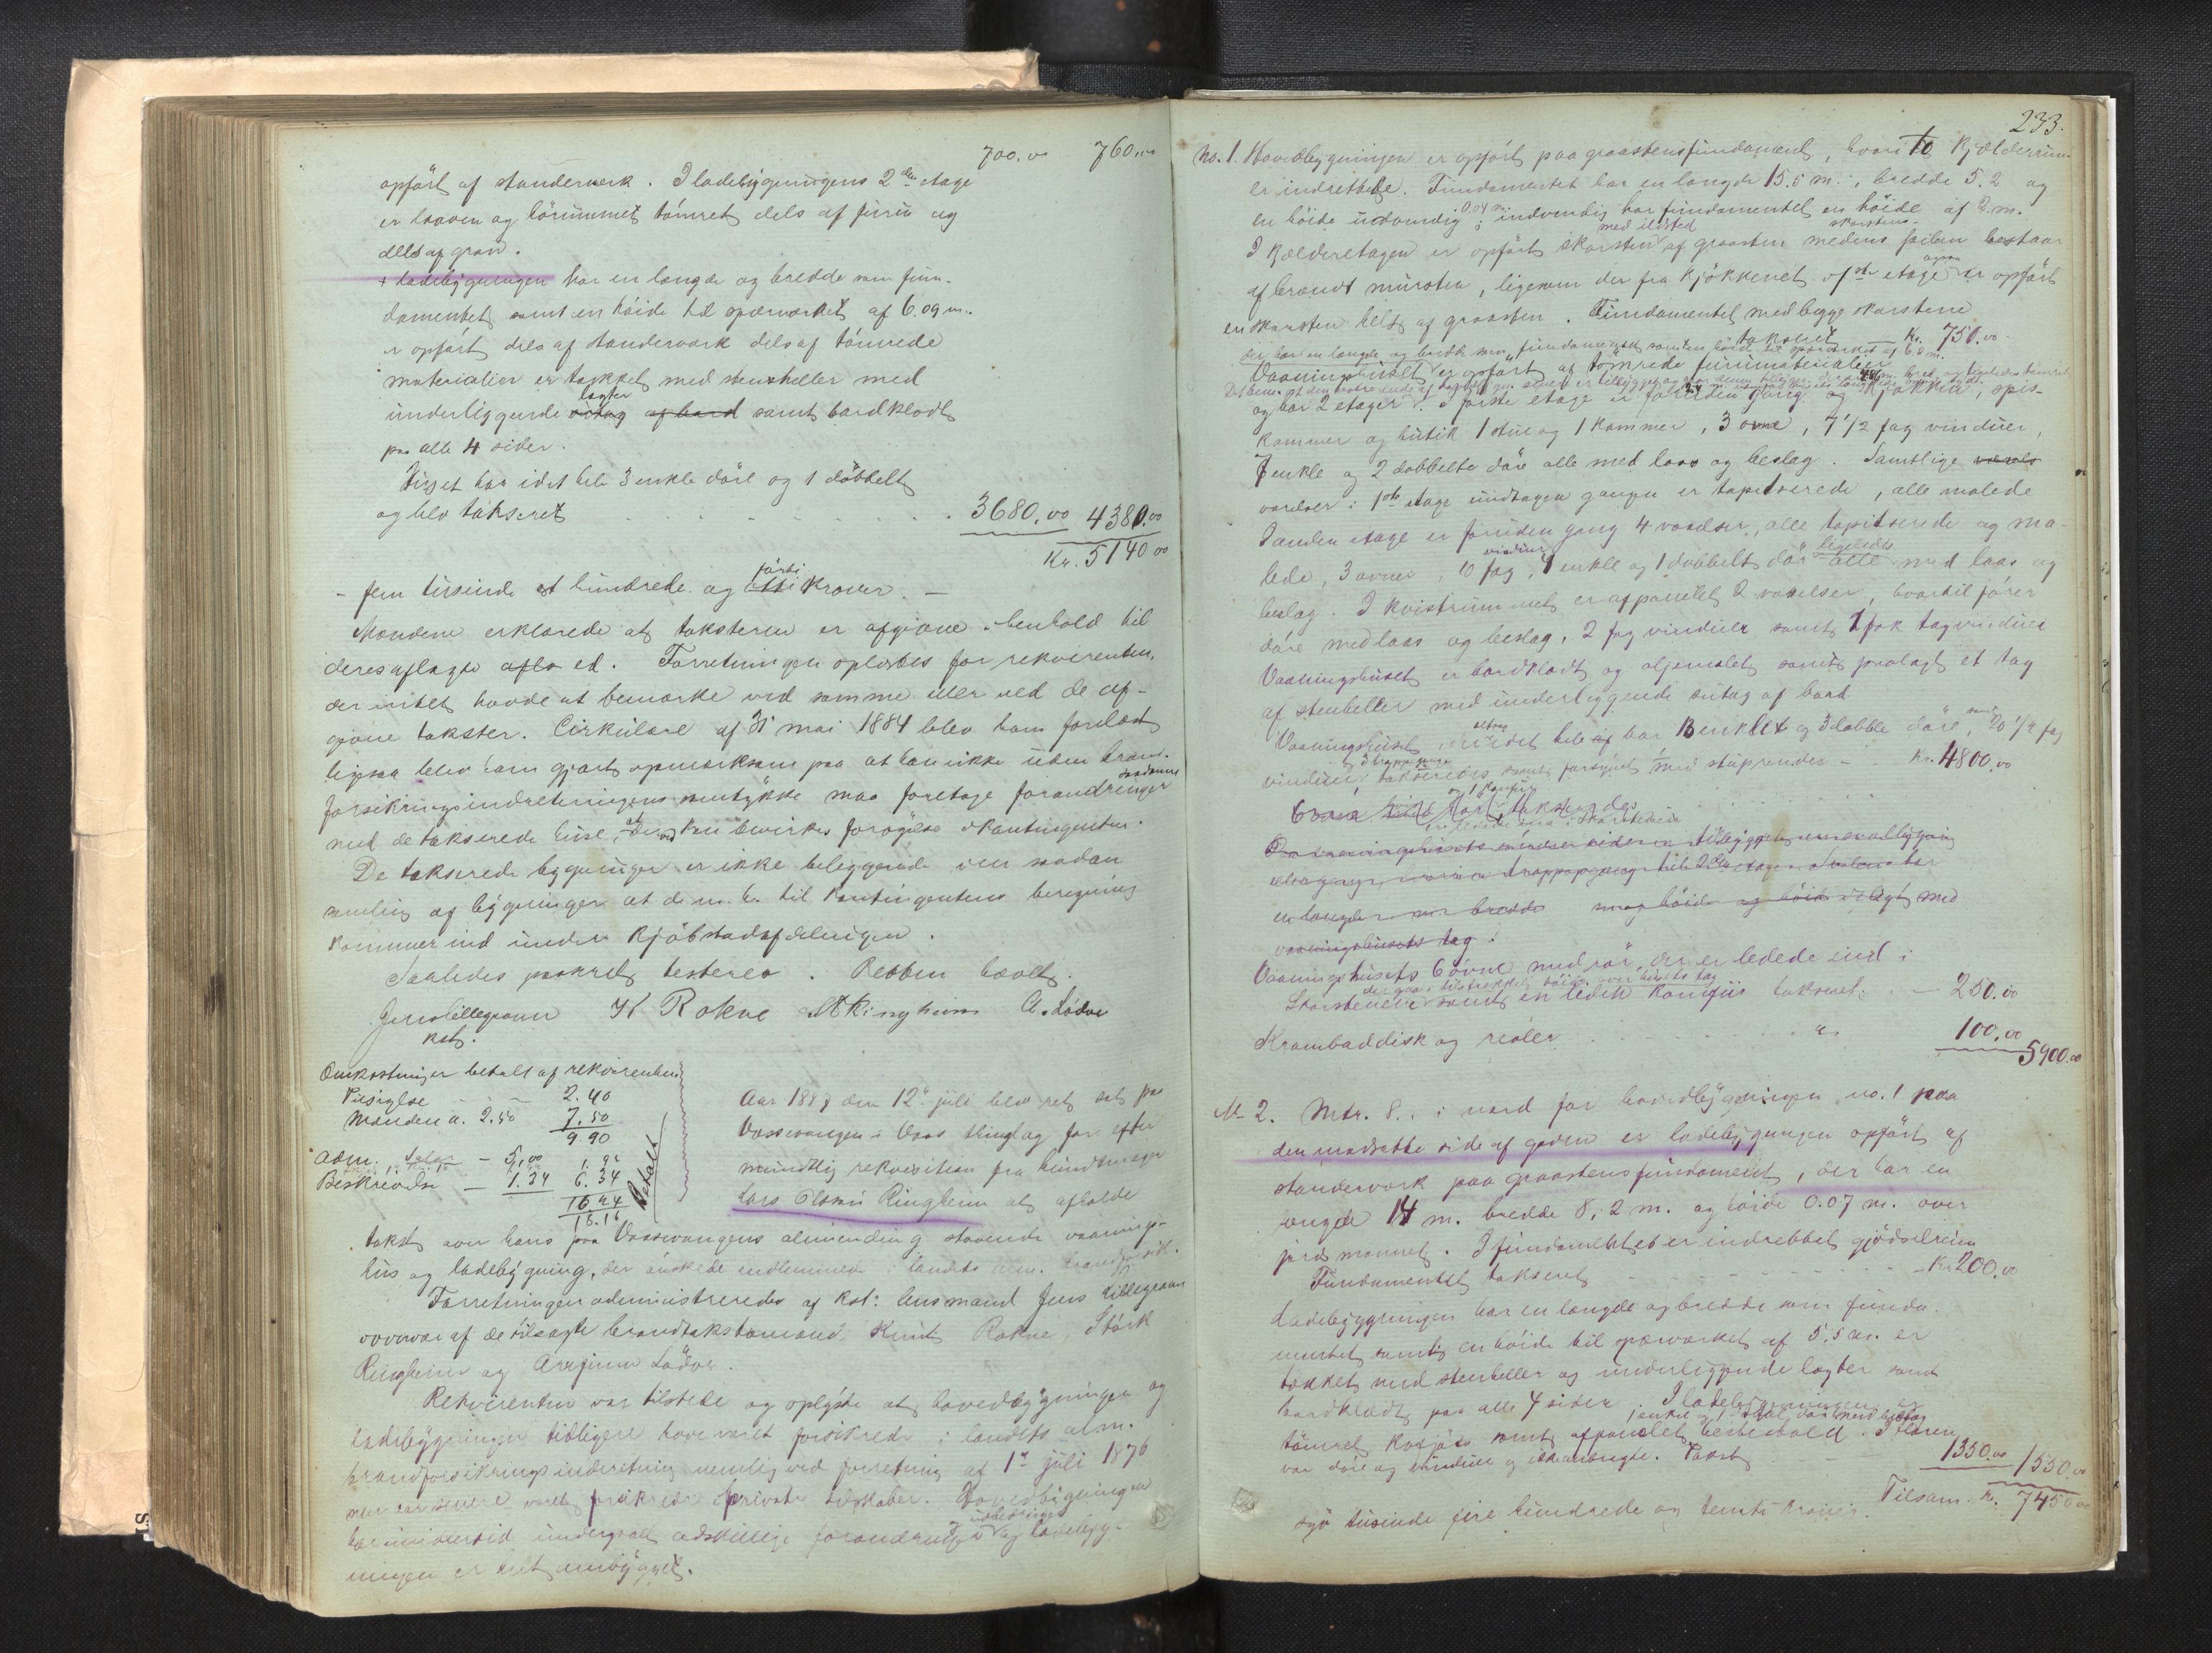 700.00 760.00
opført af standerverk. I ladebygningens 2den etage
er laaven og börummet tömret dels af furu og
dels af gran.
Ladebygningen har en længde og bredde som fun-
damentet samt en höide til sperverket af 6.09 m.
er opført dels af standerværk dels af tömrede
materialier er tækket med stenheller med
underliggende lægter samt bordklædt
paa alle 4 sider.
Huset har i det hele 3 enkle döre og 1 dobbelt
og blev takseret 3680.00 4380.00
Kr. 5140.00
- fem tusinde et hundrede og førti Kroner. -
Mændene erklærede at taksterne er afgivne i henhold til
deres aflagte ed. Forretningen oplæstes for rekvirenten,
der intet havde at bemærke ved samme eller ved de af-
givne takster. Cirkulære af 31 mai 1884 blev ham forelæst
ligesaa blev han gjort opmærksom paa at han ikke uden brand-
forsikringsindretningens samtykke maa foretage saadanne forandringer
med de takserede huse, at derved kan bevirkes forøgelse i kontingenten.
De takserede bygninger er ikke beliggende i en saadan
samling af bygninger at de m. h. til kontingentens beregning
kommer ind under Kjöbstadafdelingen.
Saaledes passeret testeres. Retten hævet.
Jens Lillegraven K Rokne St Ringheim A. Lödve
kst.
Omkostninger betalt af rekvirenten
Tilsigelse - - 2.40
Mændene a. 2.50 7.50
9.90
Adm. - 5.00
Beskrivelse - 1.34 6.34
16.24
18.16
Betalt
Aar 1888 den 12te juli blev ret sat paa
Vossevangen i Voss thinglag for efter
mundtlig rekvisition fra bundtmager
Lars Olsen Ringheim at afholde
takst over hans paa Vossevangens almending staaende vaanings-
hus og ladebygning, der ønskede indlemmet i landets alm. brandforsik.
Forretningen administreredes af kst. lensmand Jens Lillegraven
overvær af de tilsagte brandtakstmænd Knut Rokne, Störk
Ringheim og Arngrim Lödve.
Rekvirenten var tilstede og oplyste at hovedbygningen og
ladebygningen tidligere have været forsikrede i landets alm.
brandforsikringsindretning nemlig ved forretning af 1ste juli 1876
men har senere været forsikrede i private selskaber. Hovedbygningen
har imidlertid undergaaet adskillige forandringer og udbedringer og ladebyg-
ningen er helt ombygget.
233.
No. 1. Hovedbygningen er opført paa graastensfundament, hvori to kjælderrum
er indrettede. Fundamentet har en længde 15.5 m., bredde 5.2 og
en höide udvendig 0.04 m indvendig har fundamentet en höide af 2 m.
I kjælderetagen er opført skorsten med ildsted af graasten medens skorstens- piben bestaar
af brændt mursten, ligesom der fra kjökkenet i 1ste etage ogsaa er opført
en skorsten helt af graasten. Fundamentet med begge skorstene
takseret - Kr. 750.00
der har en længde og bredde som fundamentet samt en höide til sperverket af 6.8 m.
Vaaningshuset er opført af tömrede furumaterialier
og har 2 etager. I første etage er foruden gang og kjøkken, spis-
kammer og butik 1 stue og 1 kammer, 3 ovne, 7 1/2 fag vinduer,
7 enkle og 2 dobbelte döre alle med laas og beslag. Samtlige
værelser i 1ste etage undtagen gangen er tapetserede, alle malede
I anden etage er foruden gang 4 værelser, alle tapetserede og ma-
lede, 3 ovne, 10 fag vinduer, 4 enkle og 1 dobbelt dör ligeledes alle med laas og
beslag. I kvistrummet er afpanelet 2 værelser, hvortil fører
döre med laas og beslag, 2 fag vinduer samt 1 fag tagvinduer
Vaaningshuset er bordklædt og oljemalet samt paalagt et tag
af stenheller med underliggende sutag af bord
Vaaningshuset i det hele har 13 enkle og 3 dobble döre, samt 20 1/2 fag
vinduer, 3 trappegange takseredes samt forsynet med stuprender - Kr. 4800.00
6 ovne med rör takseredes
og 1 komfur
vaaningshusets tag.
Vaaningshusets 6 ovne med rör, der er ledede ind i
der gaar i tilstrækkelig höide over husets tag
Skorstenene samt en ledet komfur takseret - 250.00
Krambaddisk og reoler " 100.00
5900.00
No 2. Mtr. 8.. i nord for hovedbygningen no. 1 paa
den modsatte side af gaden er ladebygningen opført af
standerværk paa graastensfundament, der har en
længde 14 m. bredde 8,2 m. og höide 0.07 m. over
jordsmonnet. I fundamentet er indrettet gjödselrum
Fundamentet takseret - Kr 200.00
Ladebygningen har en længde og bredde som funda-
mentet samt en höide til sperverket af 5,5 m. er
tækket med stenheller og underliggende lægter samt
bordklædt paa alle 4 sider. I ladebygningen er
tömret kofjös samt afpanelet hestestald. I
1 enkel og 1 dobl. dör med beslag
var döre og vinduer og ikke anbragte. Takst - 1350.00 1550.00
Tilsam. Kr. 7450.00
syv tusinde fire hundrede og femti kroner.